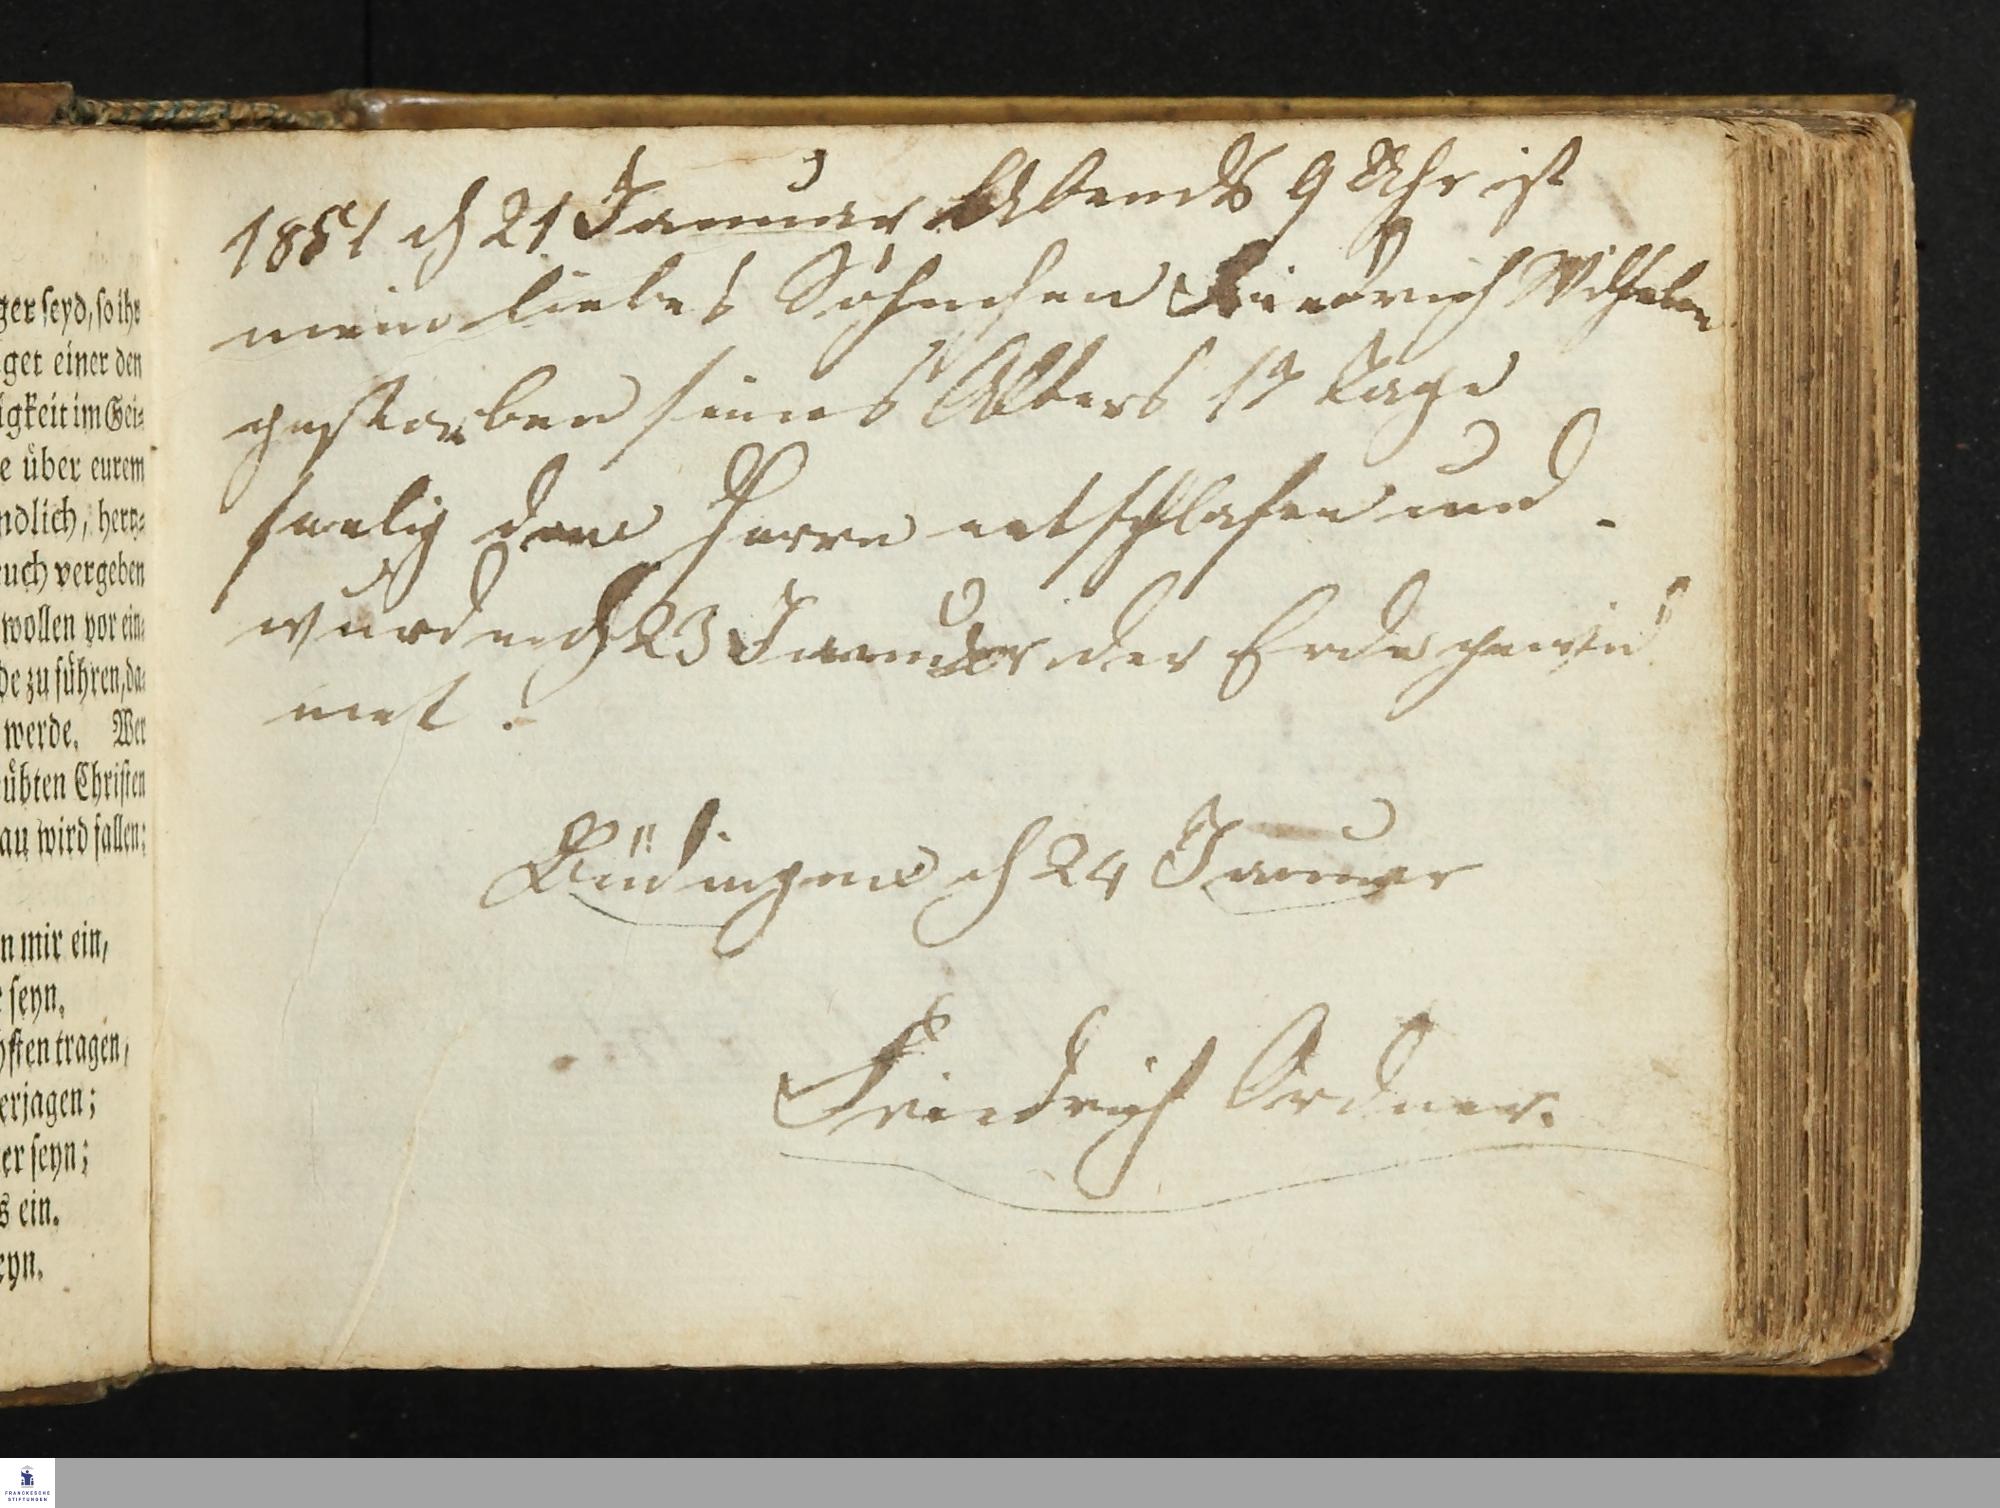 ger ſeyd, ſo ihr
get einer den
igkeit im Gei-
e über eurem
ndlich, hertz-
uch vergeben
wollen vor ein-
de zu führen, da-
werde. Wer
übten Chriſten
au wird fallen;
n mir ein,
ſeyn.
ſten tragen,
erjagen;
er ſeyn;
s ein.
eyn.
1851 d 21 Januar Abends 9 Uhr ist
mein liebes Söhnchen Friedrich Wilhelm
gestorben seines Alters 17 Tage
seelig dem Herrn entschlafen und
wurde d 23 Januar der Erde gewid
met.
Büdingen d 24 Januar
Friedrich Ordner.
FRANCKESCHE
STIFTUNGEN